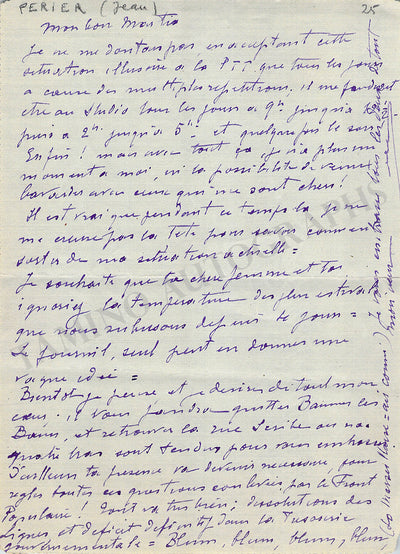 PERIER (Jean)
25
mon bon Maître
Je ne me doutais pas en acceptant cette
situation illusoire à la PTT que tous les jours
à cause des multiples répétitions, il me faudrait
être au studio tous les jours de 9h jusqu'à
puis à 2h jusqu'à 5h et quelquefois le soir
Enfin! mais avec tout ça je n'ai plus un
moment à moi, ni la possibilité de venir
bavarder avec ceux qui me sont chers!
Il est vrai que pendant ce temps là je ne
me creuse pas la tête pour savoir comment
sortir de ma situation actuelle =
Je souhaite que ta chère femme et toi
ignoriez la température des plus estivales
que nous subissons depuis le jour =
Le fournil, seul peut en donner une
vague idée =
Bientôt je pense et je désire de tout mon
cœur, il vous faudra quitter Baumes les
Bains, et retrouver la rue Scribe au
quatre bras sont tendus pour vous embrasser
D'ailleurs ta présence va devenir nécessaire, pour
régler toutes ces questions soulevées par le Front
Populaire! Tout va très bien; dissolutions des
ligues, et déficit définitif dans la Trésorerie
gouvernementale = Blum, blum, blum, blum,
TAMINO AUTOGRAPHS